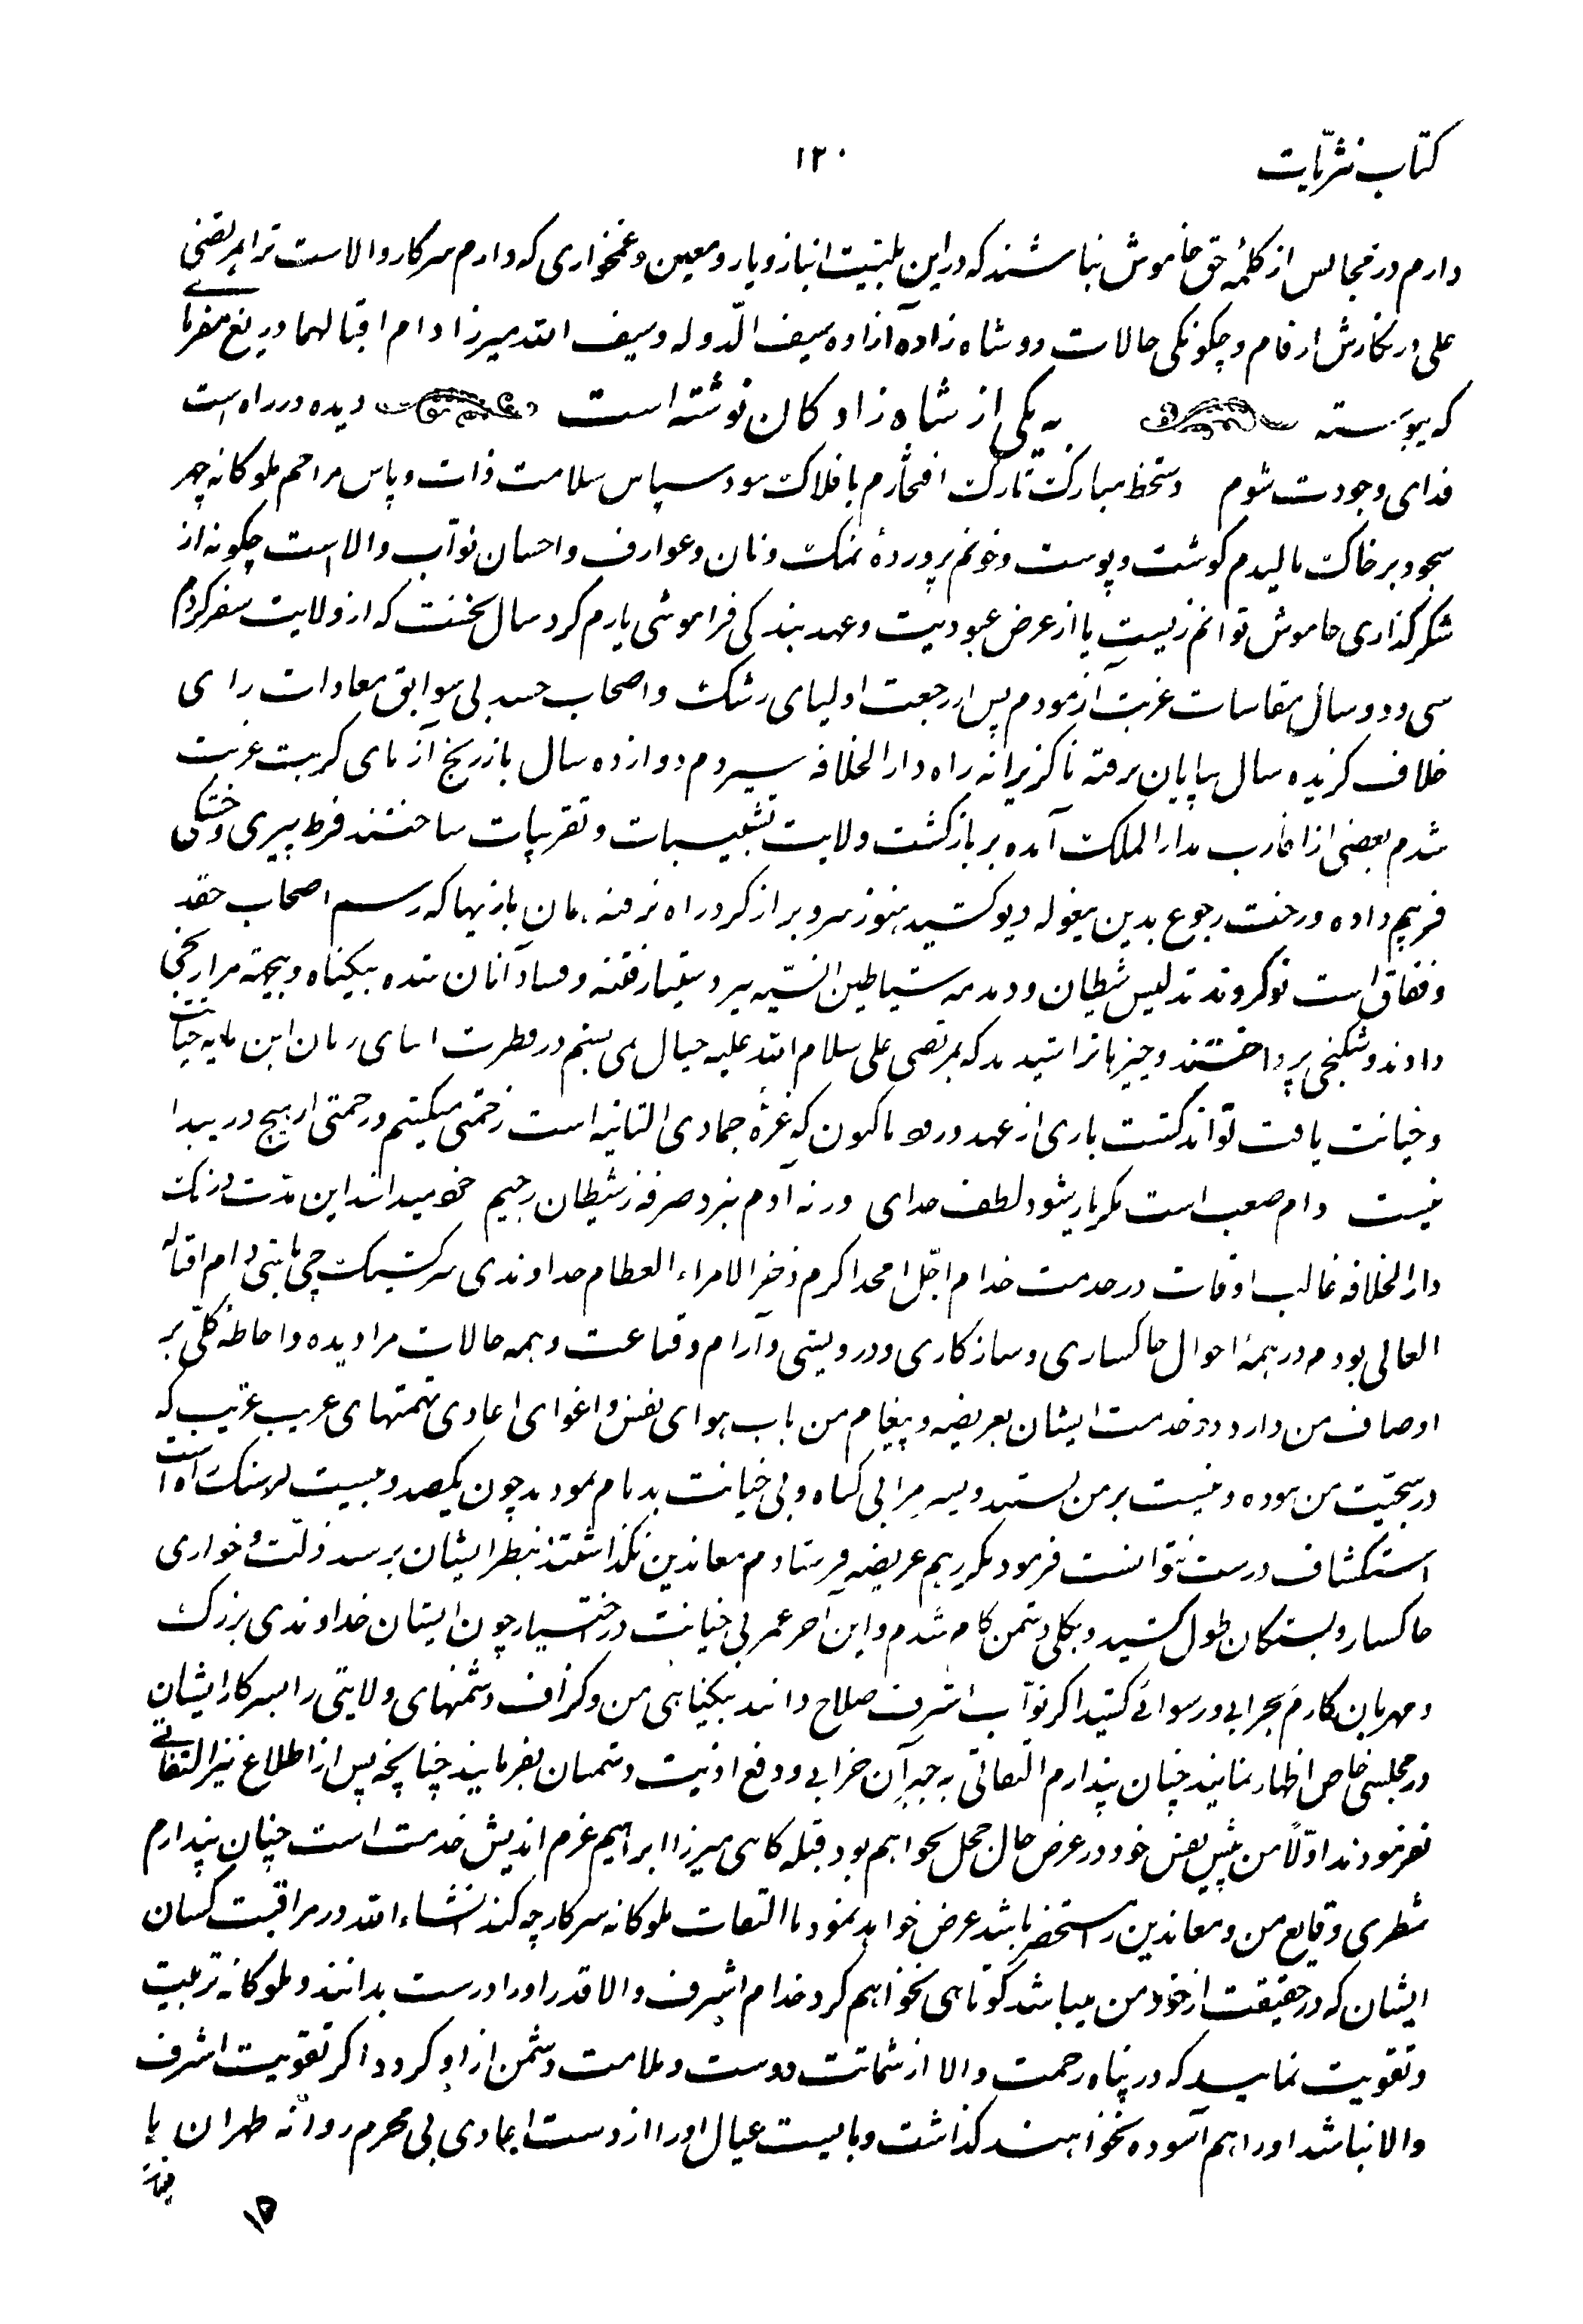 کتاب نثریّات
۱۲۰
دارم در مجالس از کلمهٔ حق خاموش نباشند که در این بلبیت انباز و یار و معین و غمخواری که دارم سرکار والاست ترا بمرتضی
علی در نگارش ارقام و چگونگی حالات دو شاه زادهٔ آزاده سیف الدّوله و سیف الله میرزا دام اقبالهما دریغ مفرمای
که پیوسته دیده در راه است
به یکی از شاه زادکان نوشته است
فدای وجودت شوم دستخط مبارک تارک افتخارم بافلاک سود سپاس سلامت ذات و پاس مراحم ملوکانه چهر
سجود بر خاک مالیدم گوشت و پوست و خونم پروردهٔ نمک و نان و عوارف و احسان نوّاب والا است چگونه از
شکر گذاری خاموش توانم زیست یا از عرض عبودیت و عهد بندگی فراموشی یارم کرد سال نخست که از ولایت سفر کردم
سی و دو سال مقاسات غربت آزمودم پس از رجعت اولیای رشک و اصحاب حسد بی سوابق معادات رای
خلاف گزیده سال بپایان نرفته ناگزیرانه راه دارالخلافه سپردم دوازده سال باز رنج آزمای کربت غربت
شدم بعضی از اقارب بدار الملک آمده بر بازگشت ولایت تشبیبات و تقریبات ساختند فرط پیری و خستگی
فریبم داده و رخت رجوع بدین بیغوله دیو کشید هنوز سر و بر از گرد راه نرفته، مان بازیها که رسم اصحاب حقد
و نفاق است نو کردند تدلیس شیطان و دمدمه شیاطین الانسیه پیر دستیار فتنه و فساد آنان شده بیگناه و بیجهته مرا رنجی
دادند و شکنجی پرداختند و چیزها تراشیدند که بمرتضی علی سلام الله علیه خیال می بستم در فطرت ابنای زمان این مایه خباثت
و خیانت یافت تواند گشت باری از عهد ورود تاکنون که غرهٔ جمادی الثانیه است زحمتی میکشم و رحمتی از هیچ در پیدا
نیست دام صعب است مگر یار شود لطف خدای ورنه آدم نبرد صرفه ز شیطان رجیم خدا میداند این مدّت درنگ
دارالخلافه غالب اوقات در خدمت خدام اجّل امجد اکرم ذخر الامراء العظام خداوندی سرکشیک چی باشی دام اقباله
العالی بودم در همهٔ احوال خاکساری و سازکاری و درویشی و آرام و قناعت و همه حالات مرا دیده و احاطهٔ کلّی بر
اوصاف من دارد در خدمت ایشان بعریضه و پیغام من باب هوای نفس و اغوای اعادی تهمتهای عریب غریب که
در سجیّت من نبوده و نیست بر من بستند و مرا بی گناه و بی خیانت بدنام نمودند چون یکصد و بیست فرسنگ راه است
استکشاف درست نتوانست فرمود مکرر هم عریضه فرستادم معاندین نگذاشتند بنظر ایشان برسد ذلّت و خواری
خاکسار و بستگان طول کشید و بکلی دشمن کام شدم و این آخر عمر بی خیانت در اختیار چون ایشان خداوندی بزرگ
و مهربان کارم بخرابی و رسوائی کشید اگر نوّاب اشرف صلاح دانند بیگناهی من و گزاف دشمنهای ولایتی را بسرکار ایشان
در مجلسی خاص اظهار نمایند چنان پندارم التفاتی به جبر آن خرابی و دفع اذیت دشمنان بفرمایند چنانچه پس از اطلاع نیز التفاتی
نفرمودند اوّلاً من پیش نفس خود در عرض حال خجل نخواهم بود قبله گاهی میرزا ابراهیم عزم اندیش خدمت است چنان پندارم
شطری وقایع من و معاندین را مستحضر باشد عرض خواهد نمود تا التفات ملوکانه سرکار چه کند انشاءالله در مراقبت کسان
ایشان که در حقیقت از خود من میباشد کوتاهی نخواهم کرد خدام اشرف والا قدر او را درست بدانند و ملوکانه تربیت
و تقویت نمایند که در پناه رحمت والا از شماتت دوست و ملامت دشمن آزاد گردد اگر تقویت اشرف
والا نباشد او را هم آسوده نخواهند گذاشت و بایست عیال او را از دست اعادی بی محرم روانه طهران یا